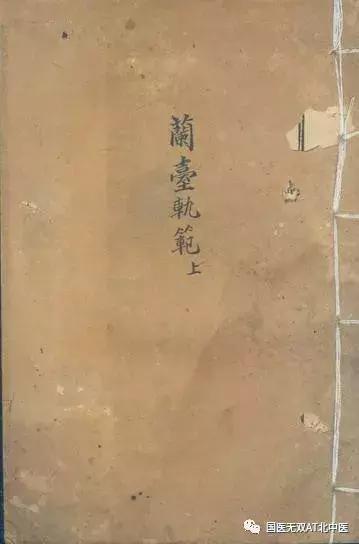 蘭臺軌範上
国医无双AT北中医